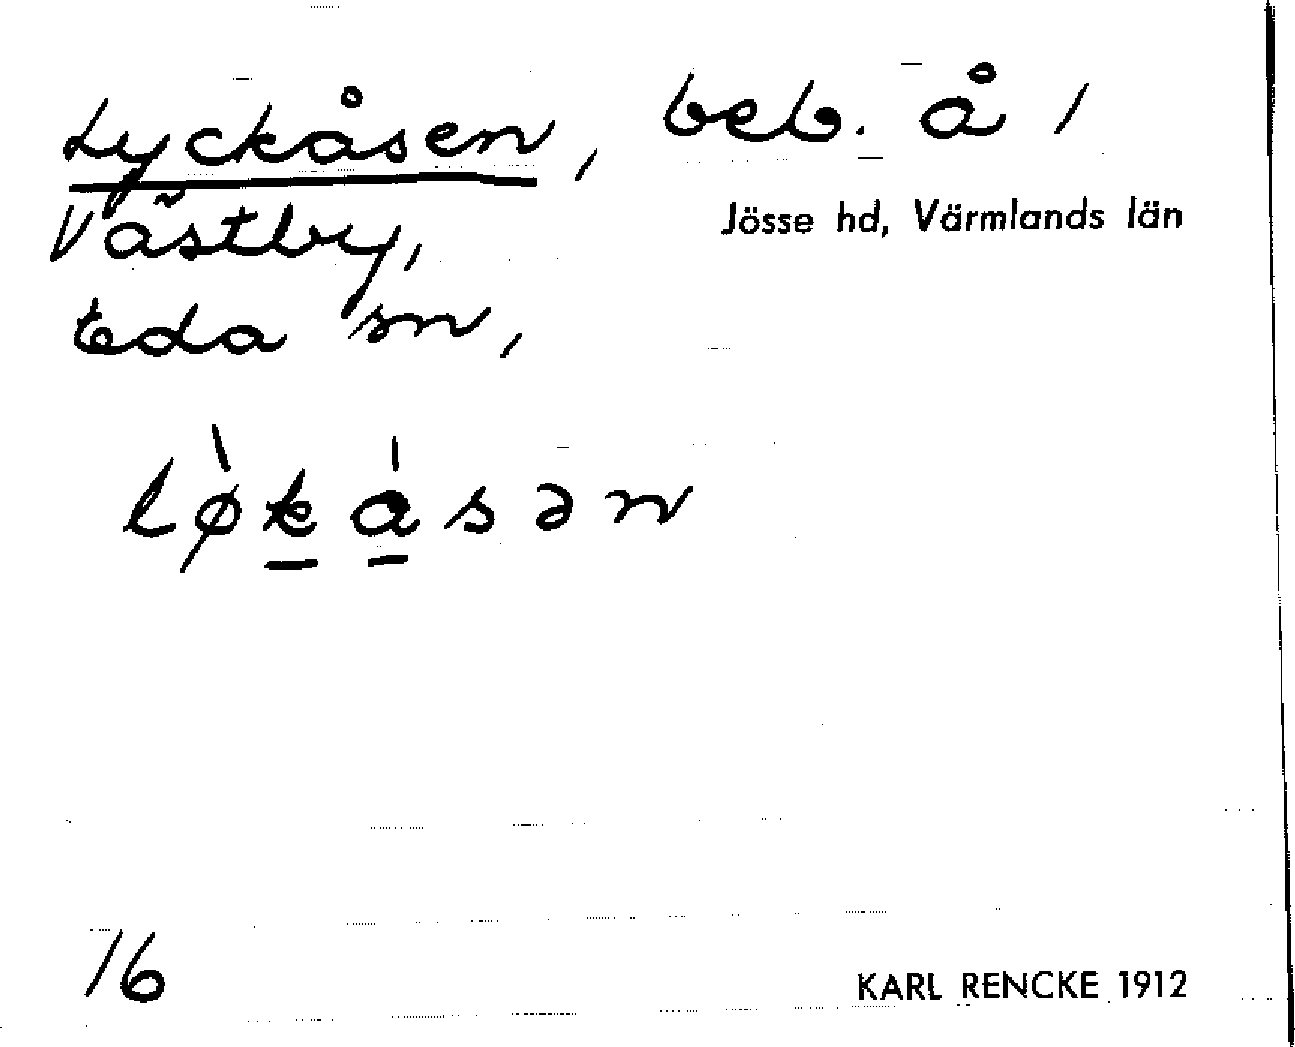 Lyckåsen, beb. å /
Västby,
Jösse hd, Värmlands län
Eda sn,
lø̀kåsən
16
KARL RENCKE 1912